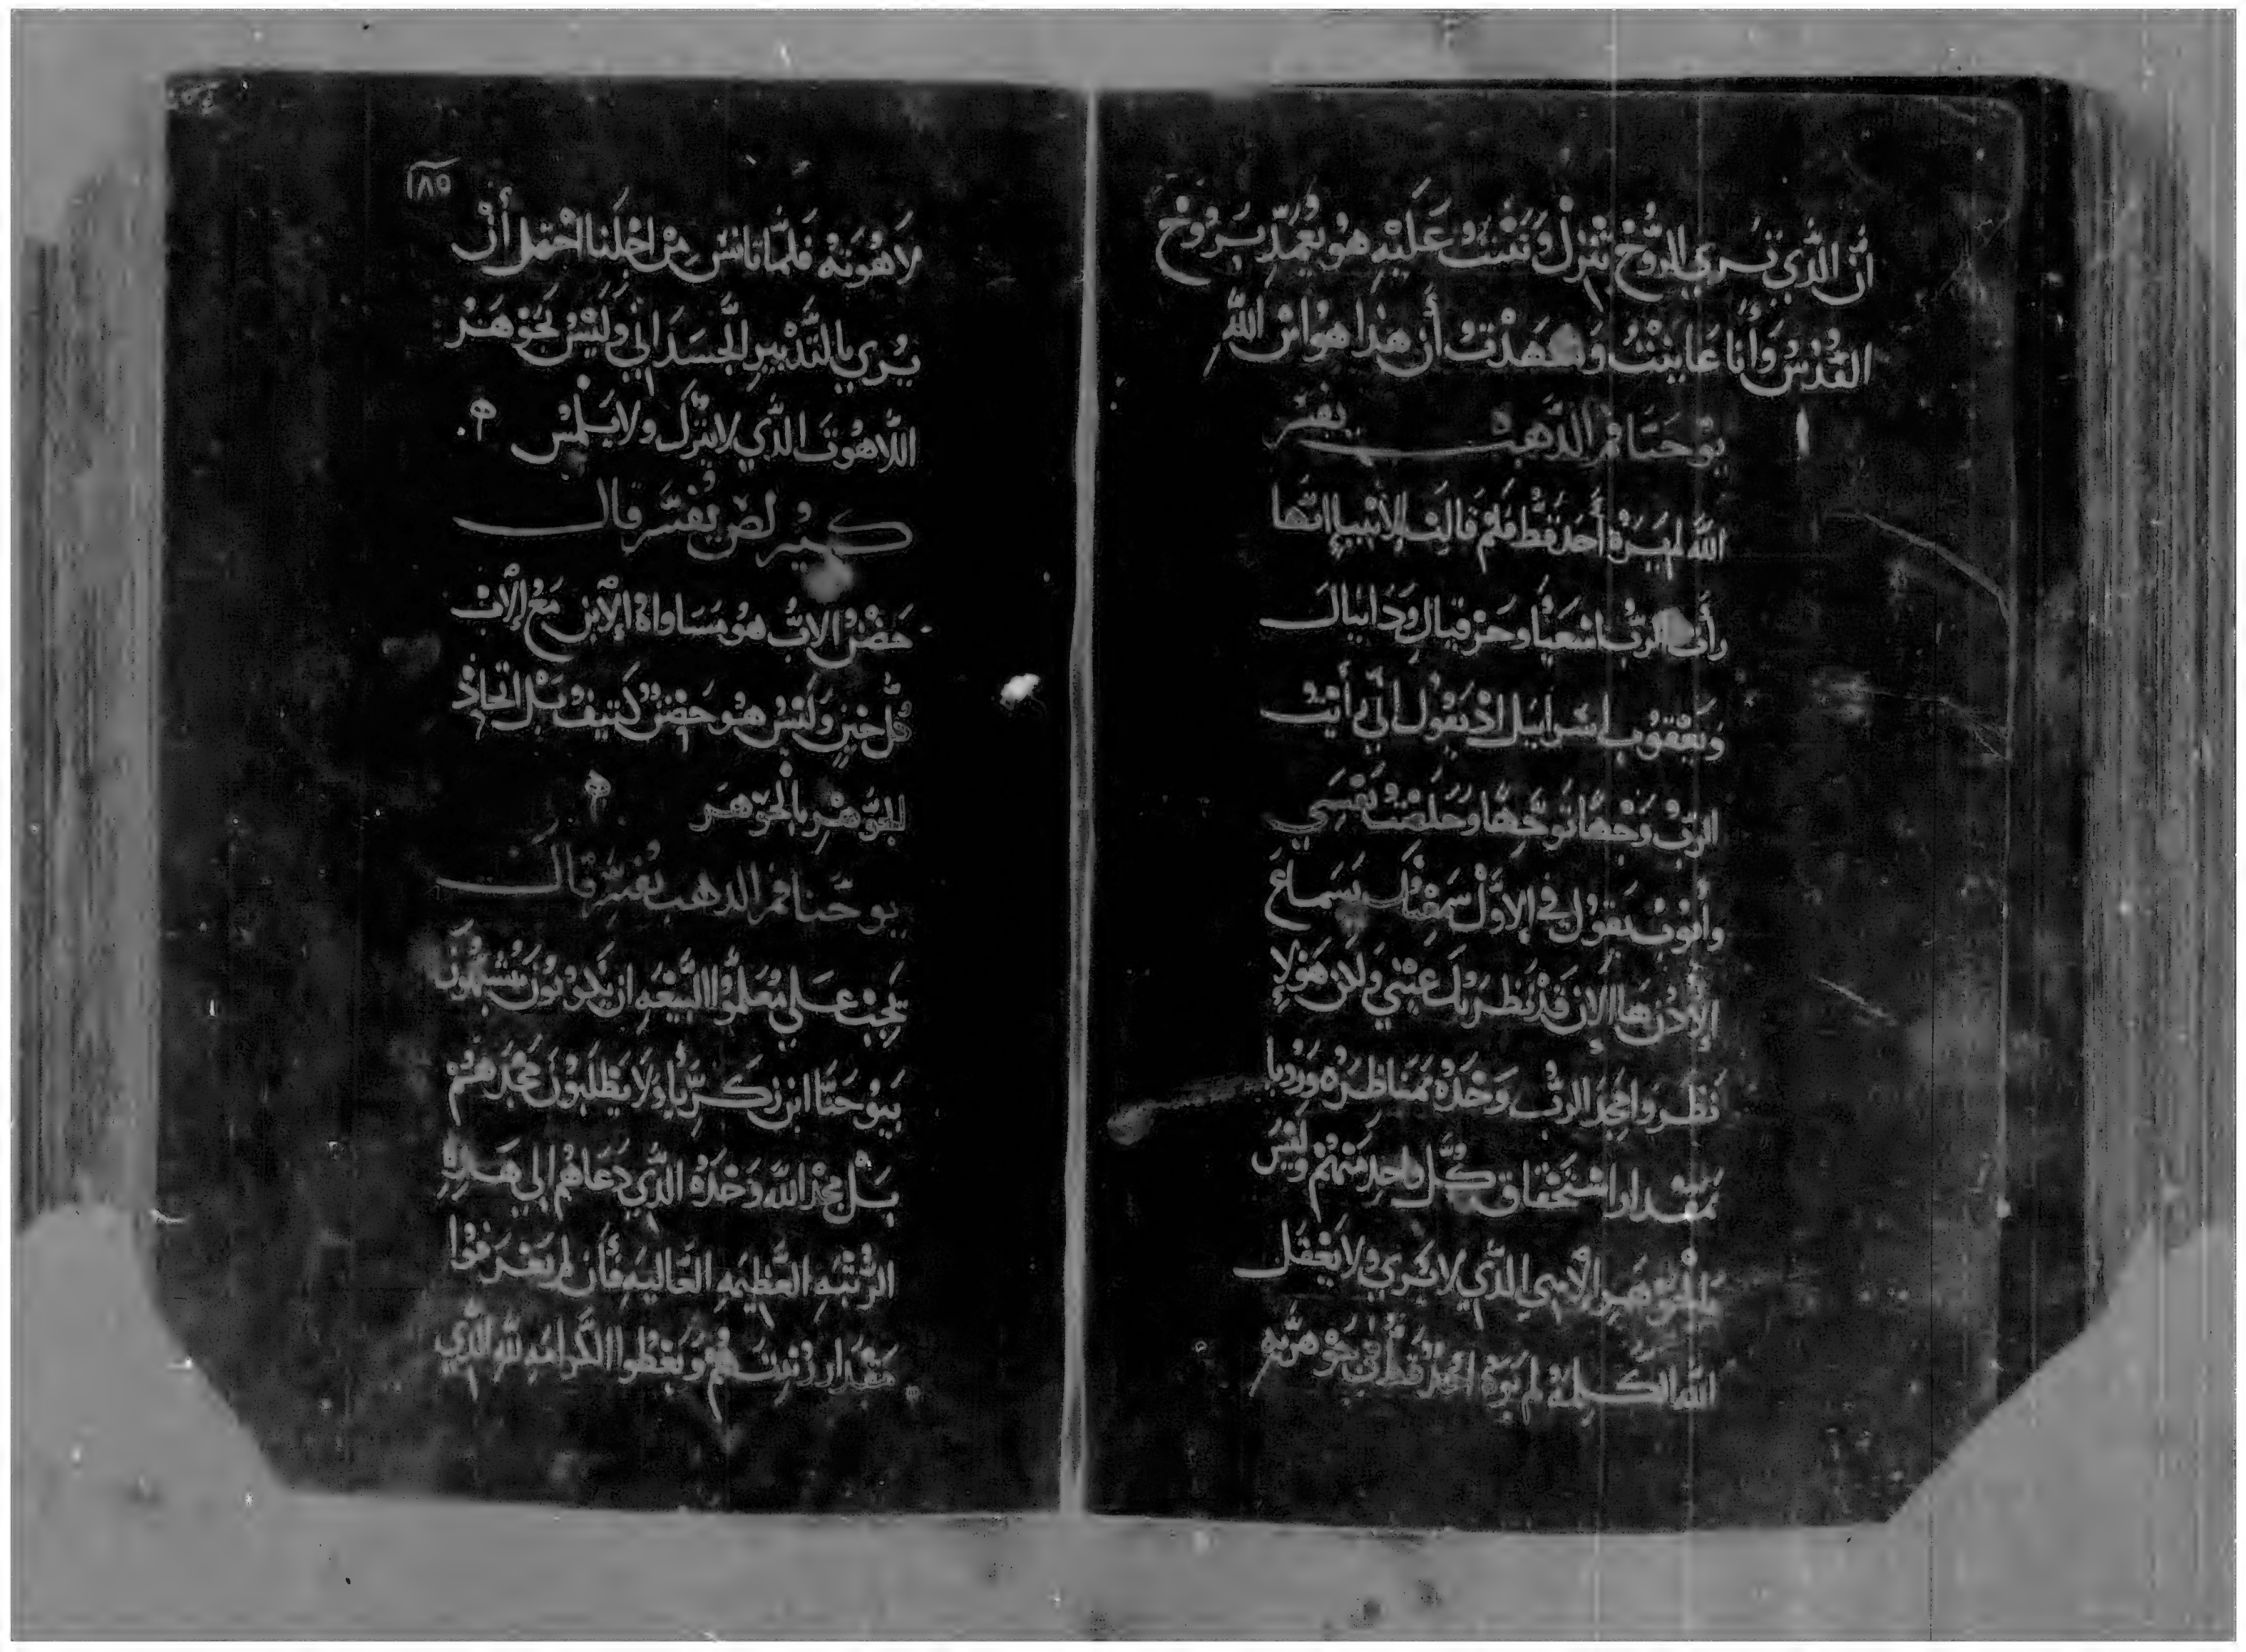 انّ الذي تري الروح تنزل وتثبت عَليْهِ هُو يعمّد بروح
القدُس وَأنا عَاينتُ وَشهَدْت أن هذا هُو ابن الله
يوحَنا فم الذهب يفسّر
الله لم يَرَهُ أحَد قط فلمَ قالت الأنبيا انّها
رأت الرب اشعَيا وحزقيال ودانيال
ويَعقوب اسراييل اذ يَقول انّي رأيت
الربّ وَجْهًا لوجهًا وخلصَت نفسي
وأيوب يقول في الأوّل سمعتك بسَماع
الأذن هَا الآن قد نظرتك عيني ولكن هَولاءِ
نظروا مجدَ الربّ وَحْدَهُ بمناظره ورُويا
بمقدار استحقاق كل واحدٍ منهم وليس
بالجوهر الأسمي الذي لا يُري ولا يعْقل
الله الكلمة لم يَرَهُ احَد قط في جوهريّته
١٨٥
لاهُوته فلمّا تانس مِن اجلنا احْتمل أن
يُري بالتّدبير الجسَداني وليْسَ بجوهَر
اللاهُوت الذي لا ينزل ولا يلمس
كيرلص يُفسّر قال
حضْن الآب هُو مسَاواة الابن مَع الآب
كل حين وليس هُو حَضْن كثيف بَل اتحاد
الجَوهَر بالجَوهَر
يوحَنا فم الدهب يُفسّر قال
يجبْ عَلي مُعَلموا البيْعَه ان يكونون متشبهُون
بيوحَنا ابن زكريّاء ولا يَطلبُون مجْدَهُم
بَل مجْد الله وَحْدَهُ الذي دعَاهُم الي هَذِهِ
الرّتبه العَظيمه العَاليه فأن لم يَعْرَفوا
مقدار رُتبتهُم وَيعْطوا الكرامه لله الذي